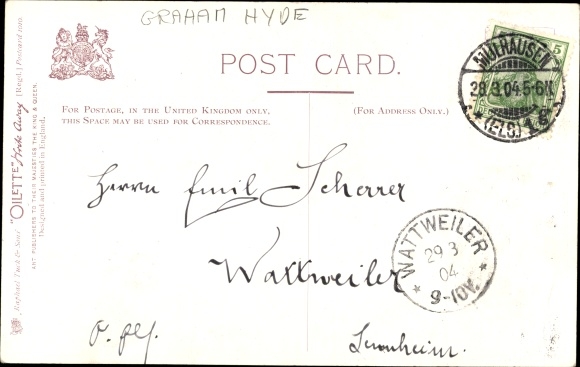 GRAHAM HYDE
POST CARD.
FOR POSTAGE, IN THE UNITED KINGDOM ONLY,
THIS SPACE MAY BE USED FOR CORRESPONDENCE.
(FOR ADDRESS ONLY.)
Raphael Tuck & Sons' "OILETTE" [Regd.] Postcard
ART PUBLISHERS TO THEIR MAJESTIES THE KING & QUEEN.
Designed and printed in England.
5
MÜLHAUSEN
28.3.04.5-6N
*(ELS) 1 *
Herrn Emil Scherrer
Wattweiler
Sennheim.
WATTWEILER
29 3
04
* 9-10V. *